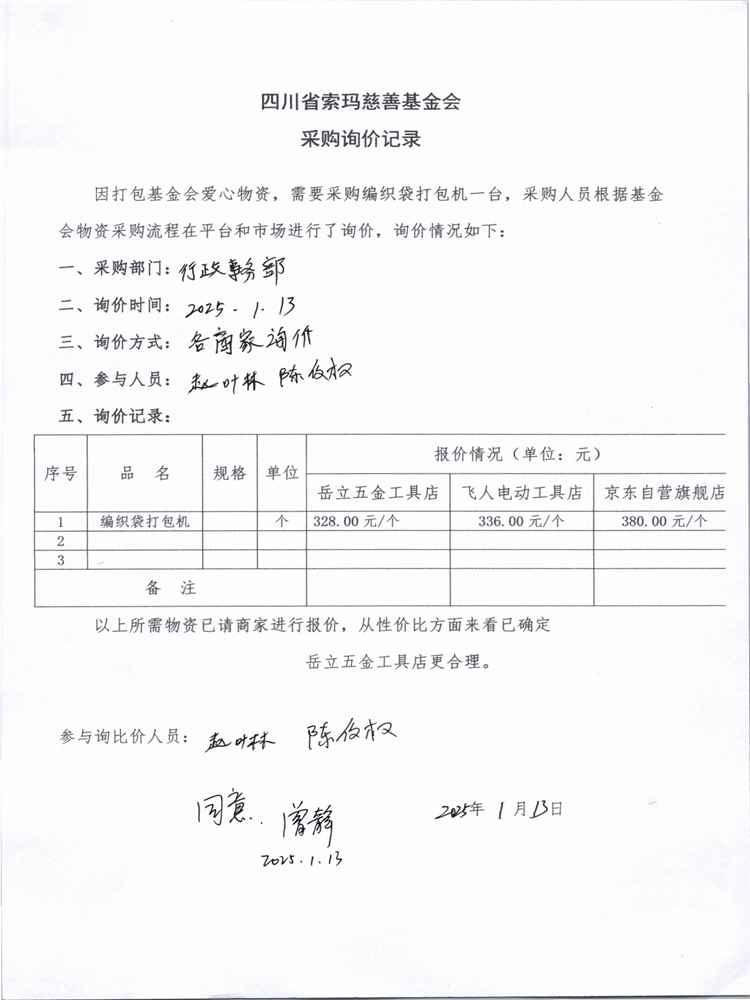 四川省索玛慈善基金会
采购询价记录
因打包基金会爱心物资，需要采购编织袋打包机一台，采购人员根据基金
会物资采购流程在平台和市场进行了询价，询价情况如下：
一、采购部门：行政事务部
二、询价时间：2025.1.13
三、询价方式：各商家询价
四、参与人员：赵叶林 陈俊权
五、询价记录：
序号 品 名 规格 单位 报价情况（单位：元）
岳立五金工具店 飞人电动工具店 京东自营旗舰店
1 编织袋打包机 个 328.00 元/个 336.00 元/个 380.00 元/个
2
3
备 注
以上所需物资已请商家进行报价，从性价比方面来看已确定
岳立五金工具店更合理。
参与询比价人员：赵叶林 陈俊权
同意. 曾静 2025年 1 月 13日
2025.1.13